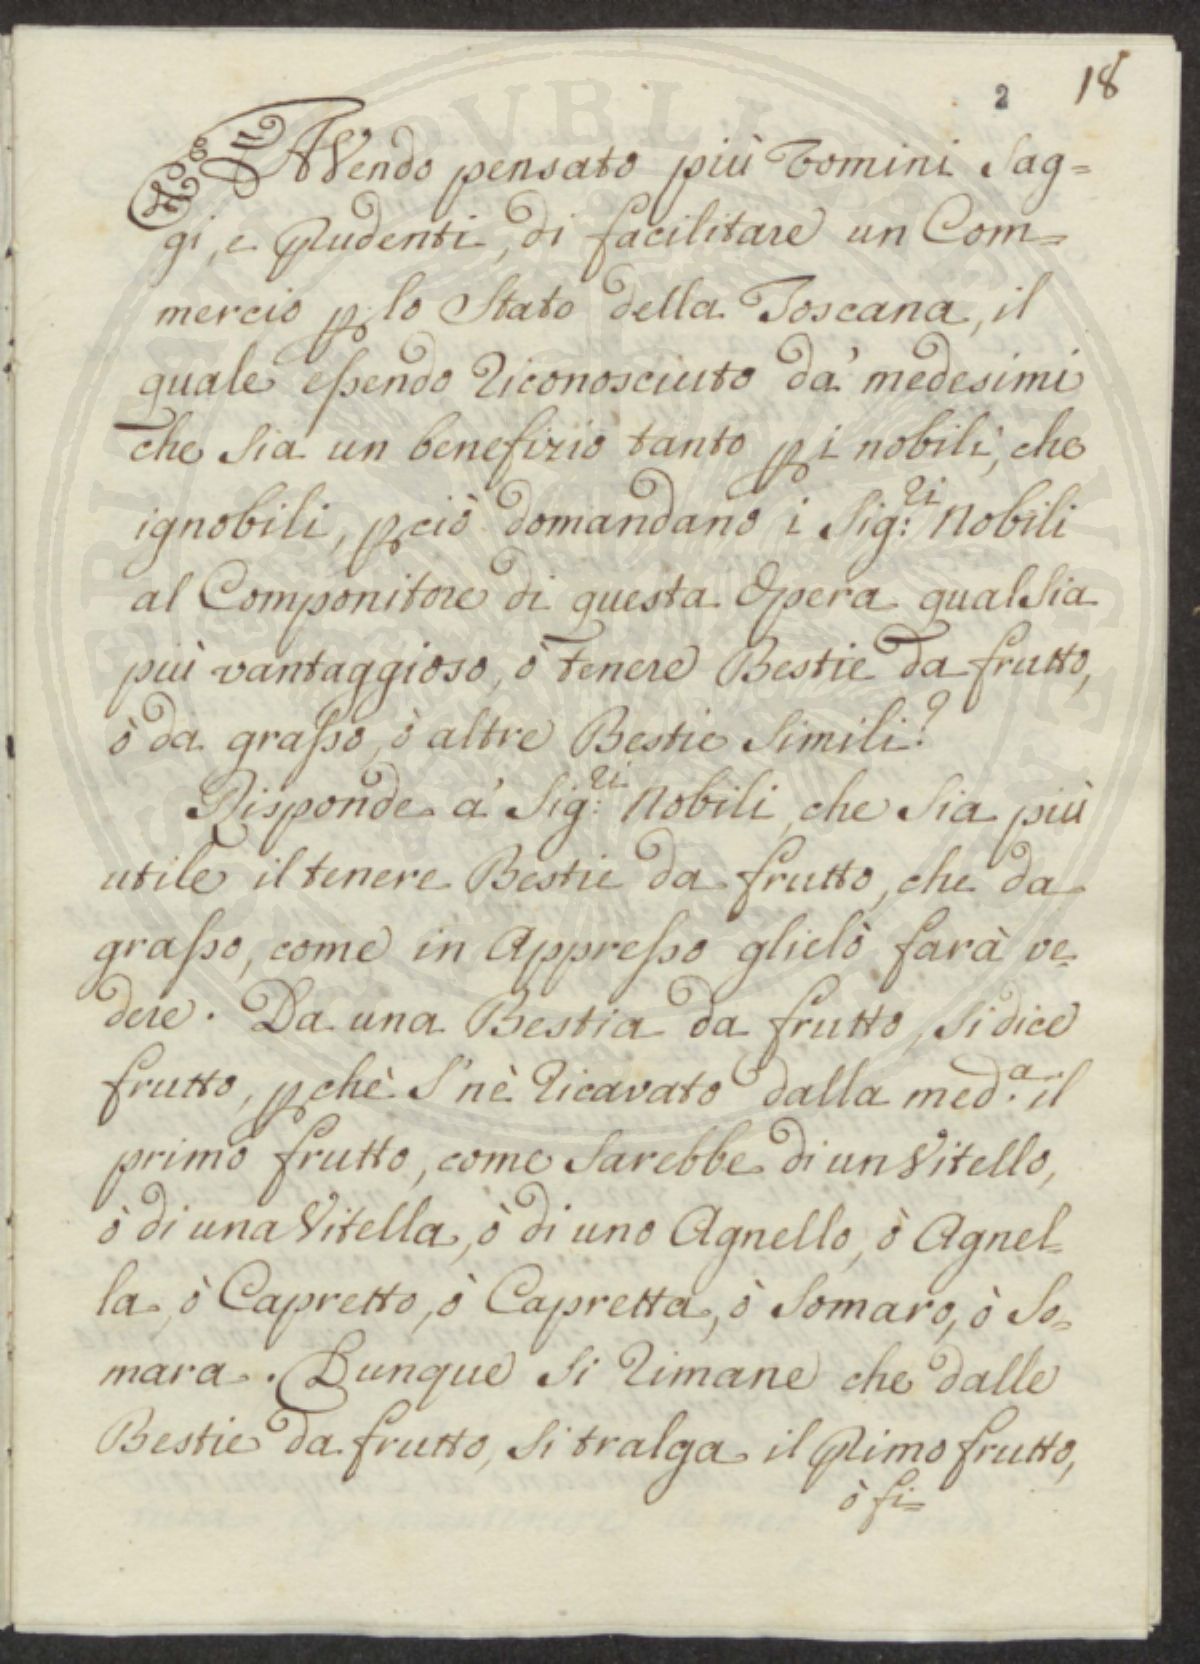 2 18
AVendo pensato più Uomini Sag=
gi, e Prudenti, di facilitare un Com=
mercio p lo Stato della Toscana, il
quale essendo riconosciuto da' medesimi
che sia un benefizio tanto p i nobili, che
ignobili, pciò domandano i Sig:ri Nobili
al Componitore di questa Opera qual sia
più vantaggioso, ò tenere Bestie da frutto,
ò da grasso, ò altre Bestie simili?
Risponde a' Sig:ri Nobili, che sia più
utile il tenere Bestie da frutto, che da
grasso, come in Appresso glielò farà ve=
dere. Da una Bestia da frutto, si dice
frutto, pchè s'nè ricavato dalla med.a il
primo frutto, come sarebbe di un Vitello,
ò di una Vitella, ò di uno Agnello, ò Agnel=
la, ò Capretto, ò Capretta, ò Somaro, ò So=
mara. Dunque si rimane che dalle
Bestie da frutto, si tralga il Primo frutto,
ò fi=